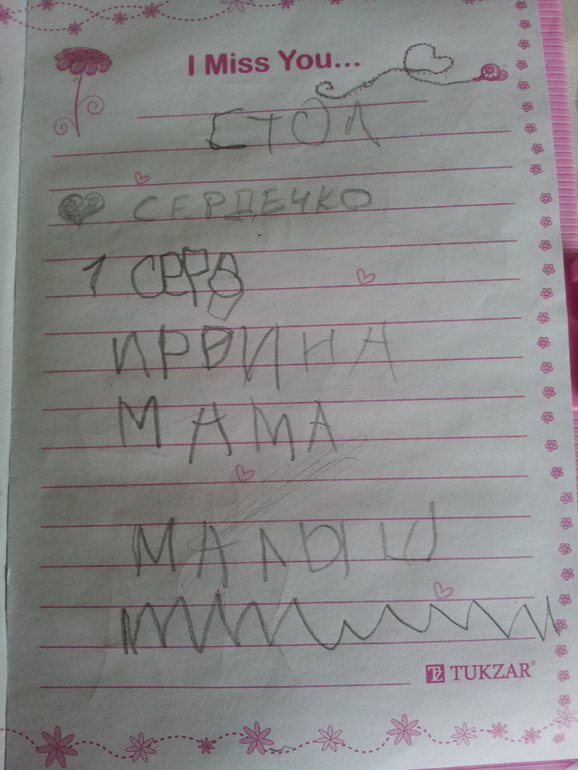 I Miss You...
СТОЛ
СЕРДЕЧКО
1 СЕРД
ИРОИНА
МАМА
МАЛЫШ
TZ TUKZAR®